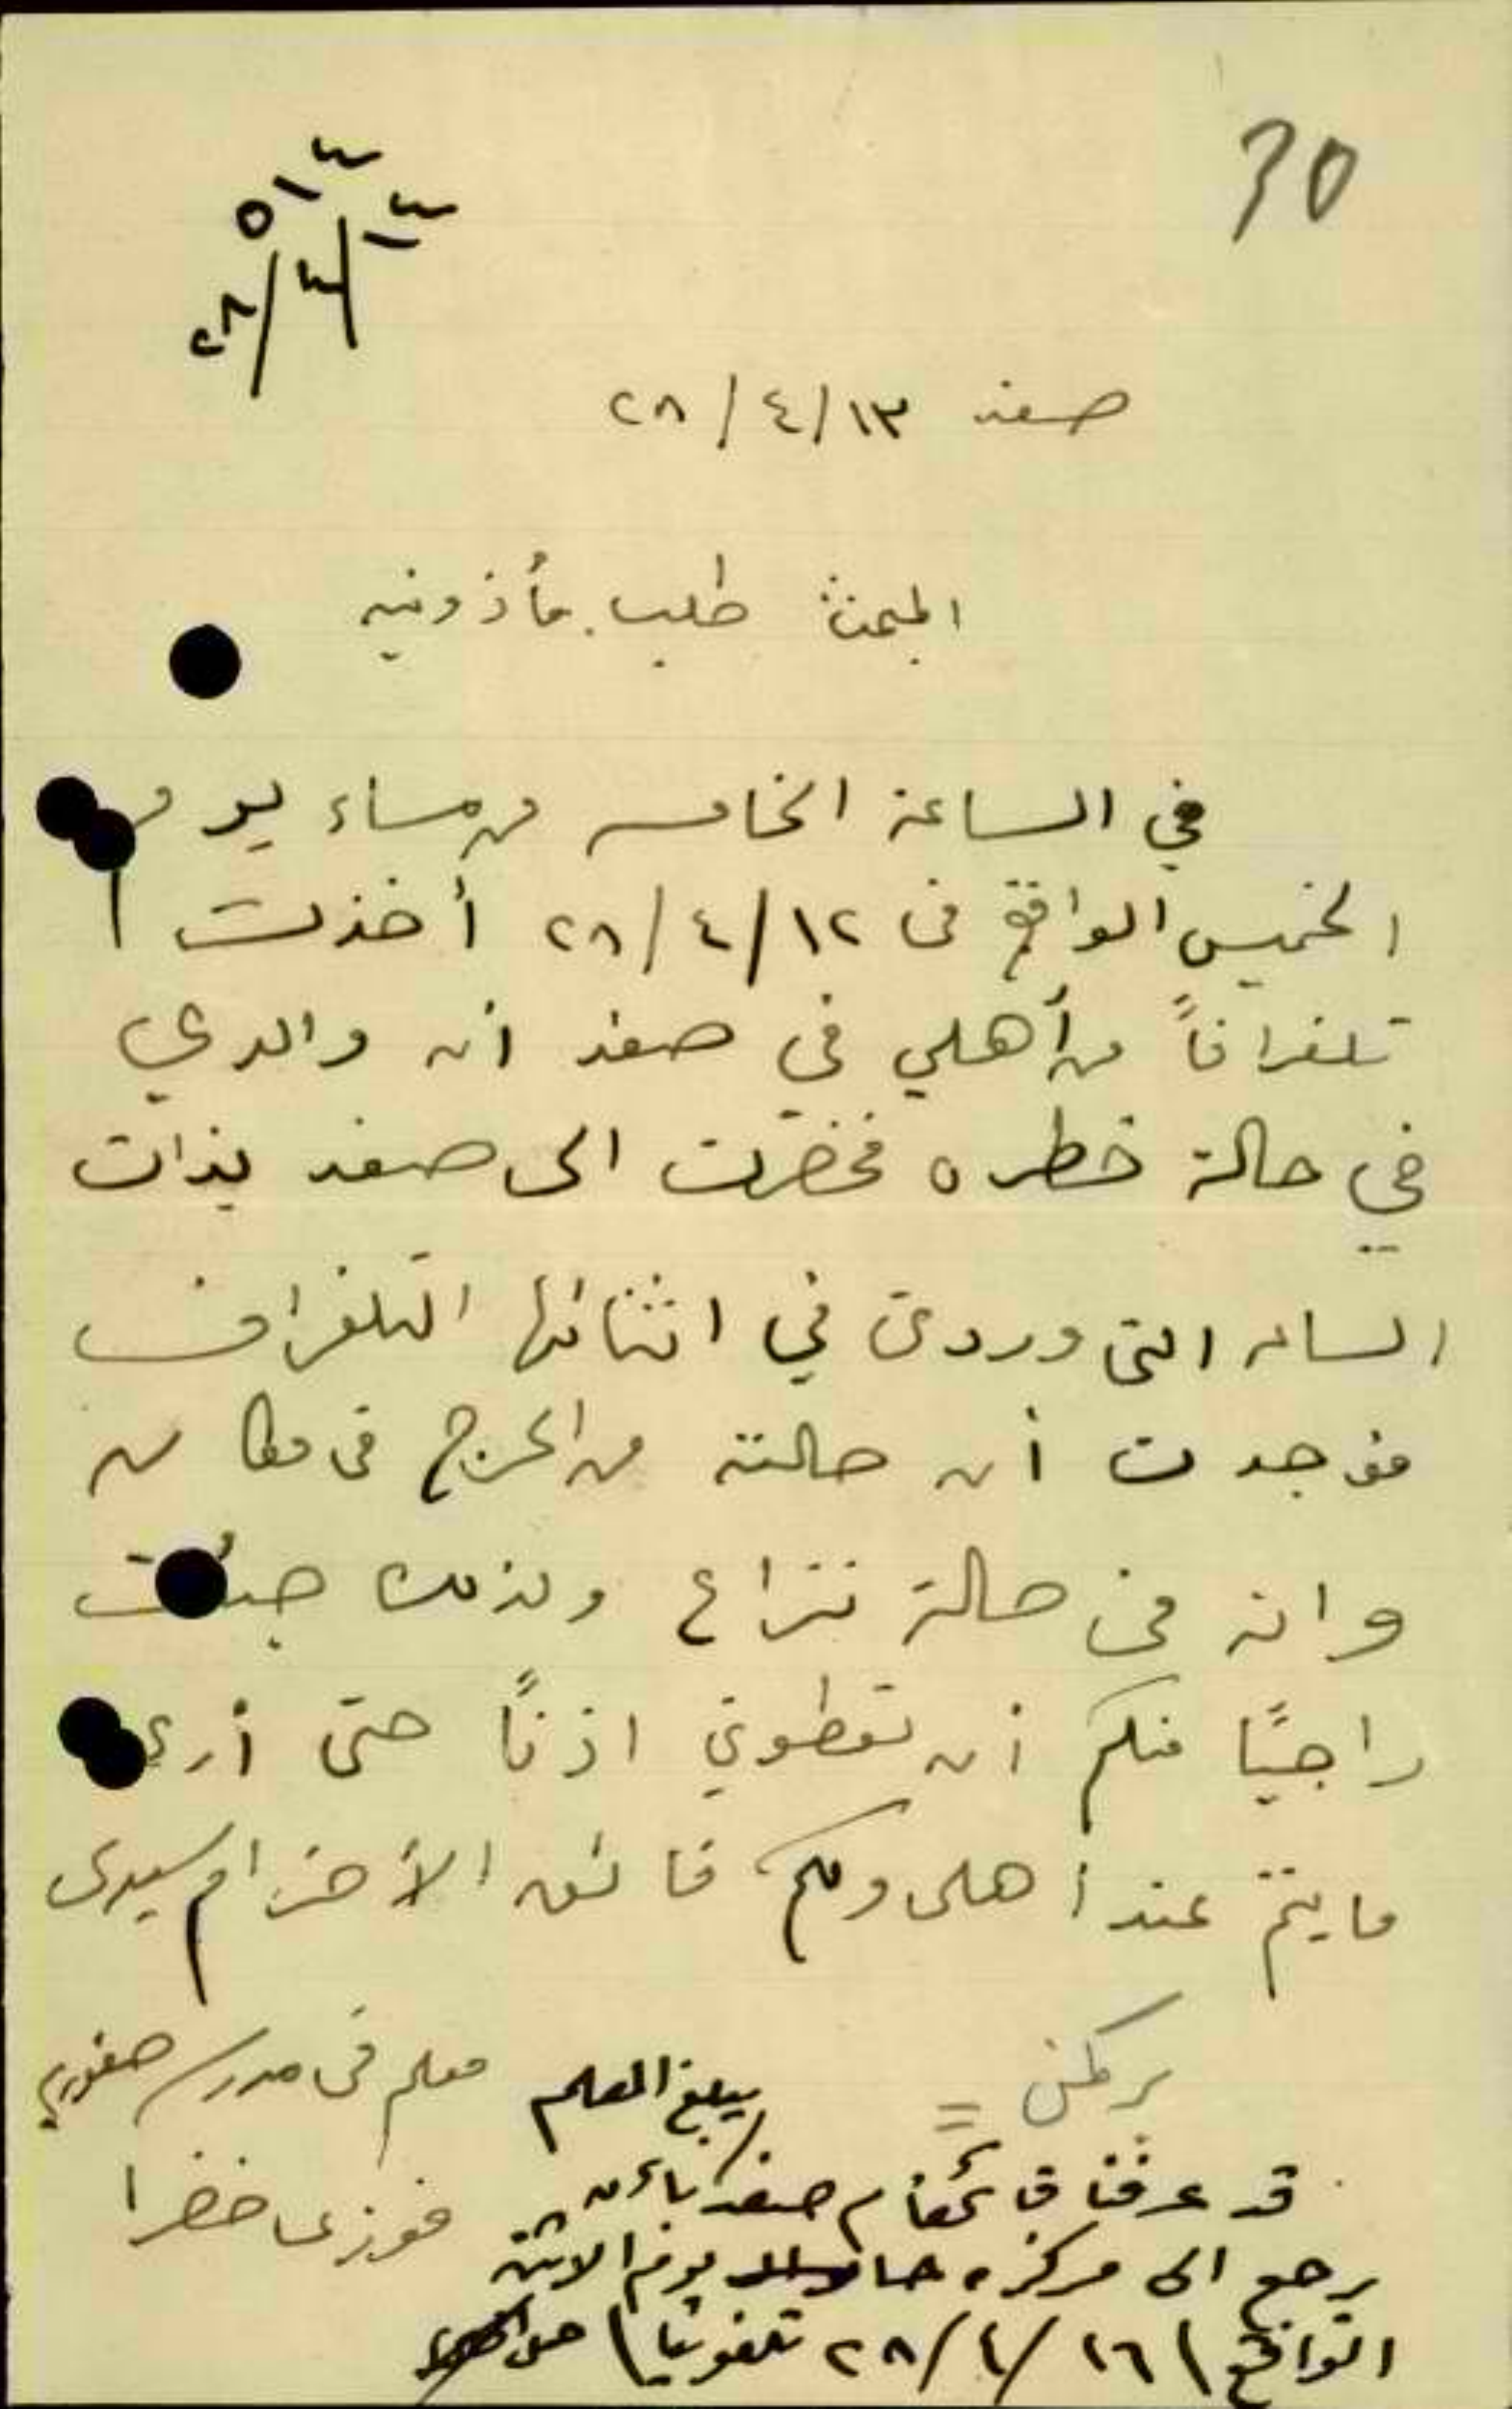 30
صفد ١٣/٤/٢٨
المبحث طلب مأذونيه
في الساعة الخامسه من مساء يوم
الخميس الواقع في ١٢/٤/٢٨ أخذت
تلغرافاً من أهلي في صفد ان والدي
في حالة خطره فحضرت الى صفد بذات
الساعه التي وردني في اثنائها التلغراف
فوجدت أن حالته من الحرج في مكان
وانه في حالة نزاع ولذلك جئت
راجيًا منكم أن تعطوني اذنًا حتى أرى
ما يتم عند أهلي ولكم فائق الاحترام سيدي
معلم في مدرسة صفوريه
فوزي خضرا
يبلغ المعلم
قد عرفنا قائمقام صفد بأن
يرجع الى مركزه يوم الاثنين
الواقع ١٦/٤/٢٨ تلفونيا